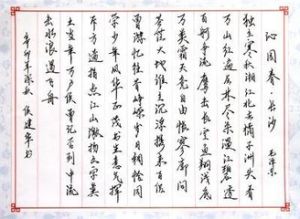 沁园春 长沙
毛泽东
独立寒秋湘江北去橘子洲头看
万山红遍层林尽染漫江碧透
百舸争流鹰击长空鱼翔浅底
万类霜天竞自由怅寥廓问
苍茫大地谁主沉浮携来百侣
曾游忆往昔峥嵘岁月稠恰同
学少年风华正茂书生意气挥
斥方遒指点江山激扬文字粪
土当年万户侯曾记否到中流
击水浪遏飞舟
辛卯年深秋 侯建华书